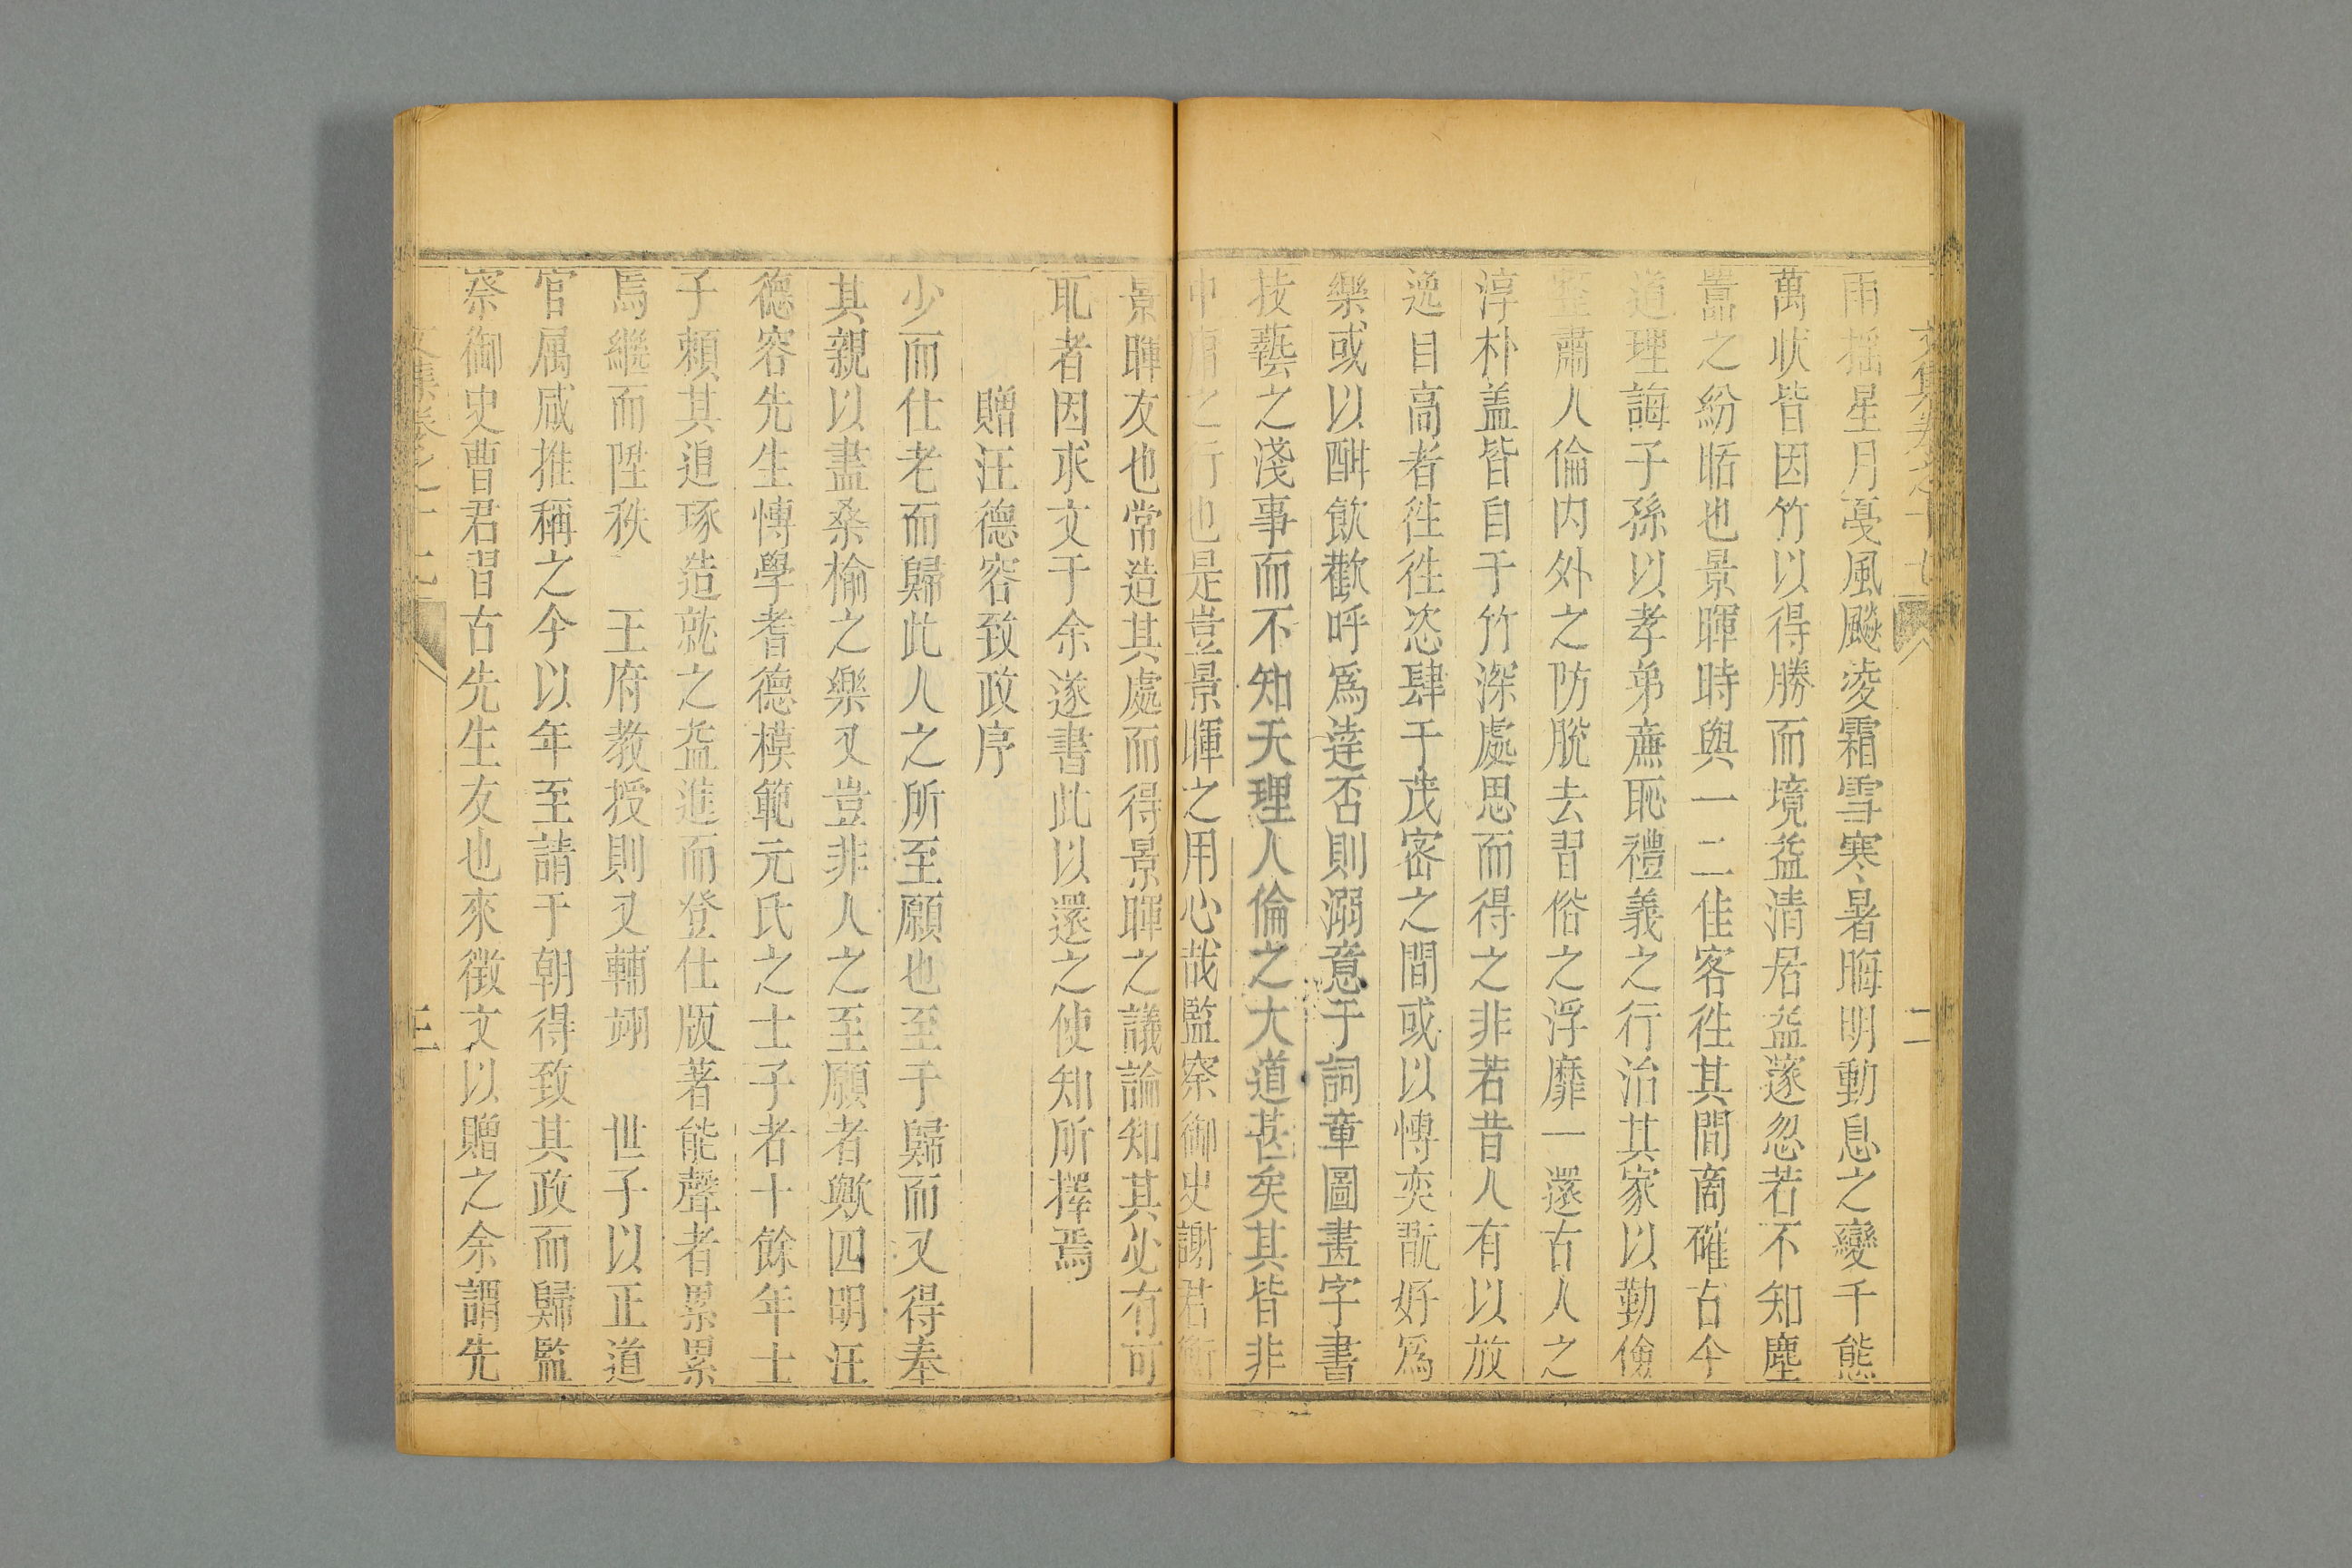 文集卷之十七
二
雨揺星月戞風颷淩霜雪寒暑晦明動息之變千態
萬状皆因竹以得勝而境益清居益䆳忽若不知塵
囂之紛聒也景暉時與一二佳客徃其間商確古今
道理誨子孫以孝弟亷恥禮義之行治其家以勤儉
肅人倫内外之防脫去習俗之浮靡一還古人之
淳朴盖皆自于竹深處思而得之非若昔人有以放
逸目高者徃徃恣肆于茂宻之間或以愽奕翫好爲
樂或以酣飲歡呼爲逹否則溺意于詞章圖畫字書
技藝之淺事而不知天理人倫之大道甚矣其皆非
中庸之行也是豈景暉之用心哉監察御史謝君衡
景暉友也常造其處而得景暉之議論知其必有可
耻者因求文于余遂書此以還之使知所擇焉
贈汪德容致政序
少而仕老而歸此人之所至願也至于歸而又得奉
其親以盡桑榆之樂又豈非人之至願者歟四明汪
德容先生愽學耆德模範元氏之士子者十餘年士
子頼其追琢造就之益進而登仕版著能聲者累累
焉繼而陞秩 王府教授則又輔翊 世子以正道
官属咸推稱之今以年至請于朝得致其政而歸監
察御史曹君習古先生友也來徴文以贈之余謂先
文集卷之十七
三